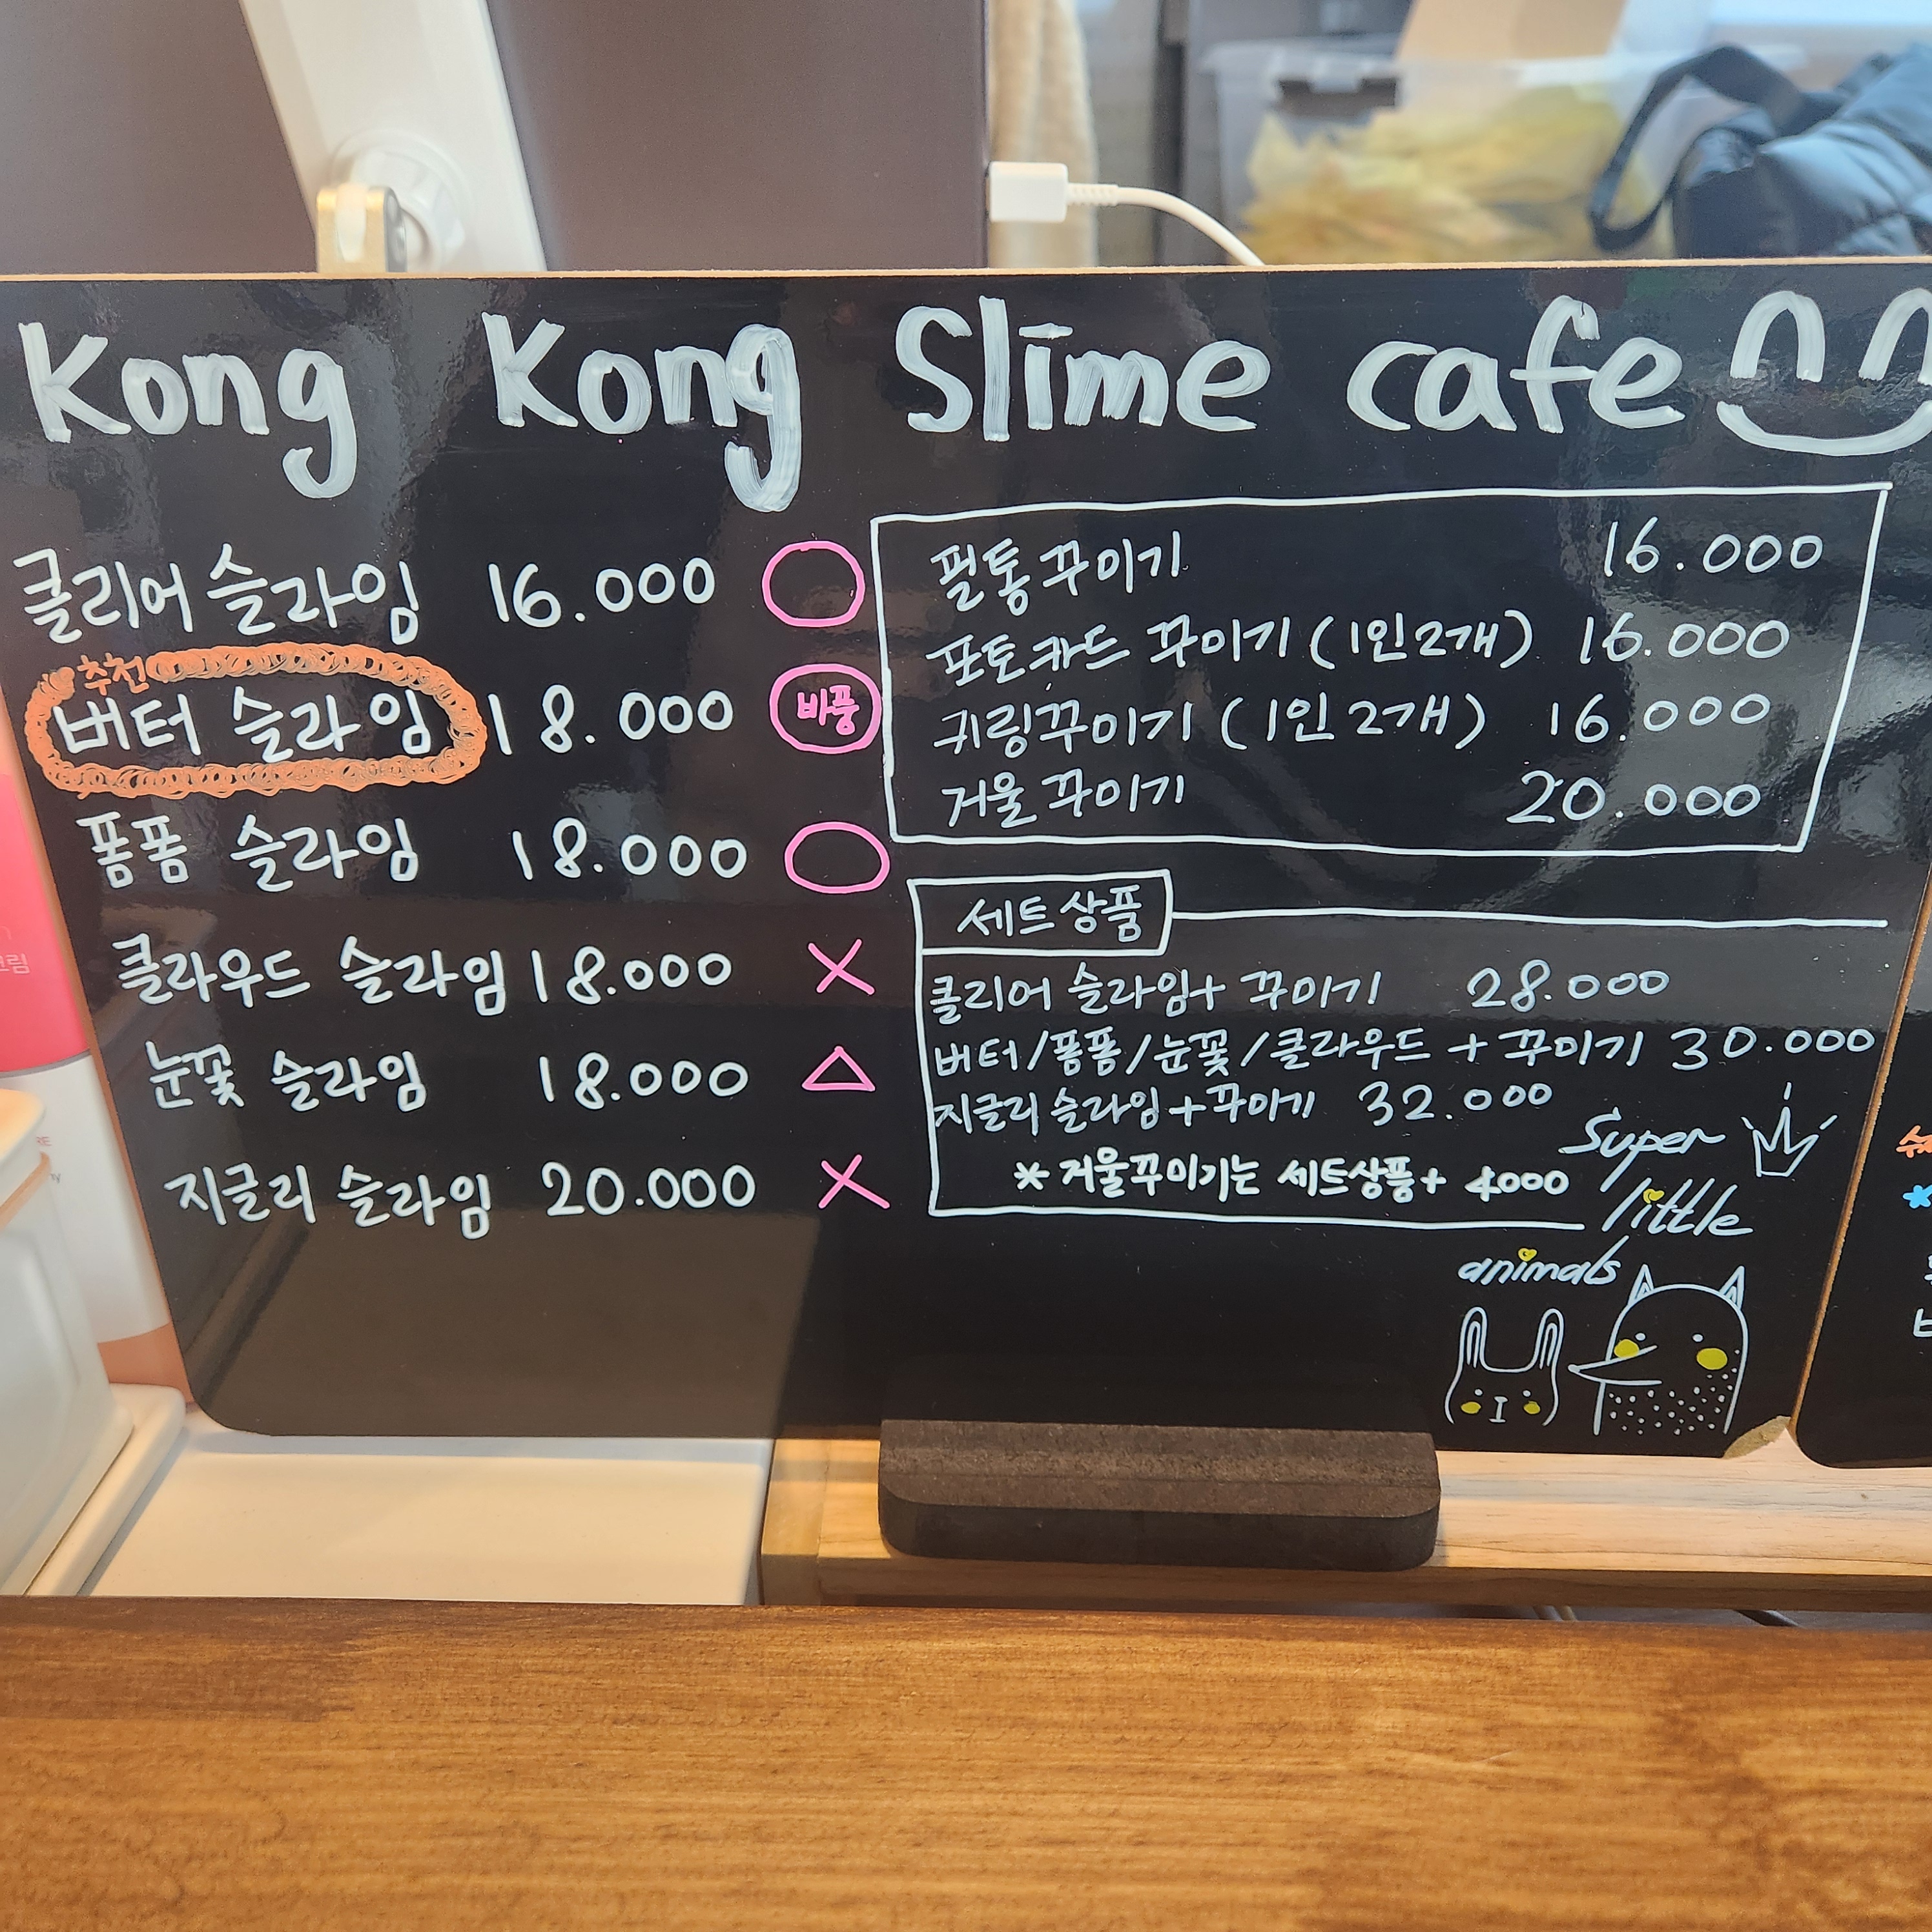 Kong Kong Slime cafe
클리어 슬라임 16.000 ○
추천
버터 슬라임 18.000 바풍
퐁퐁 슬라임 18.000 ○
클라우드 슬라임 18.000 X
눈꽃 슬라임 18.000 △
지글리 슬라임 20.000 X
필통 꾸미기 16.000
포토카드 꾸미기 (1인2개) 16.000
키링꾸미기 (1인2개) 16.000
거울 꾸미기 20.000
세트상품
클리어 슬라임+ 꾸미기 28.000
버터/퐁퐁/눈꽃/클라우드 + 꾸미기 30.000
지글리 슬라임+꾸미기 32.000
* 거울꾸미기는 세트상품+ 4000
Super
little
animals